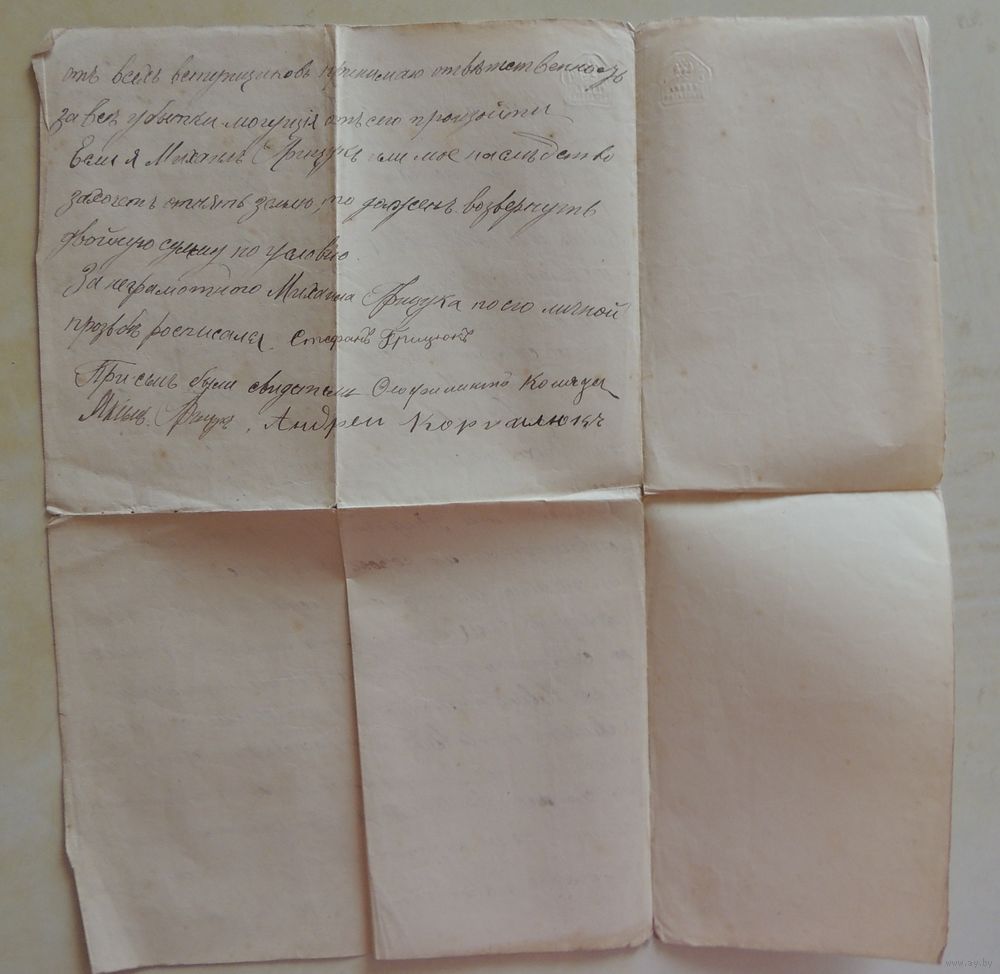 отъ всехъ вступщиковъ принимаю отвѣтственность
за все убытки могущія отъ сего произойти
Если я Михаилъ или мое наследство
захочетъ отнять землю, то долженъ возвернуть
двойную сумму по условію.
За неграмотного Михаила по его личной
прозбѣ росписался Стефанъ Грицюкъ
При семъ были свидетели Коляда
Андрей
www.ay.by